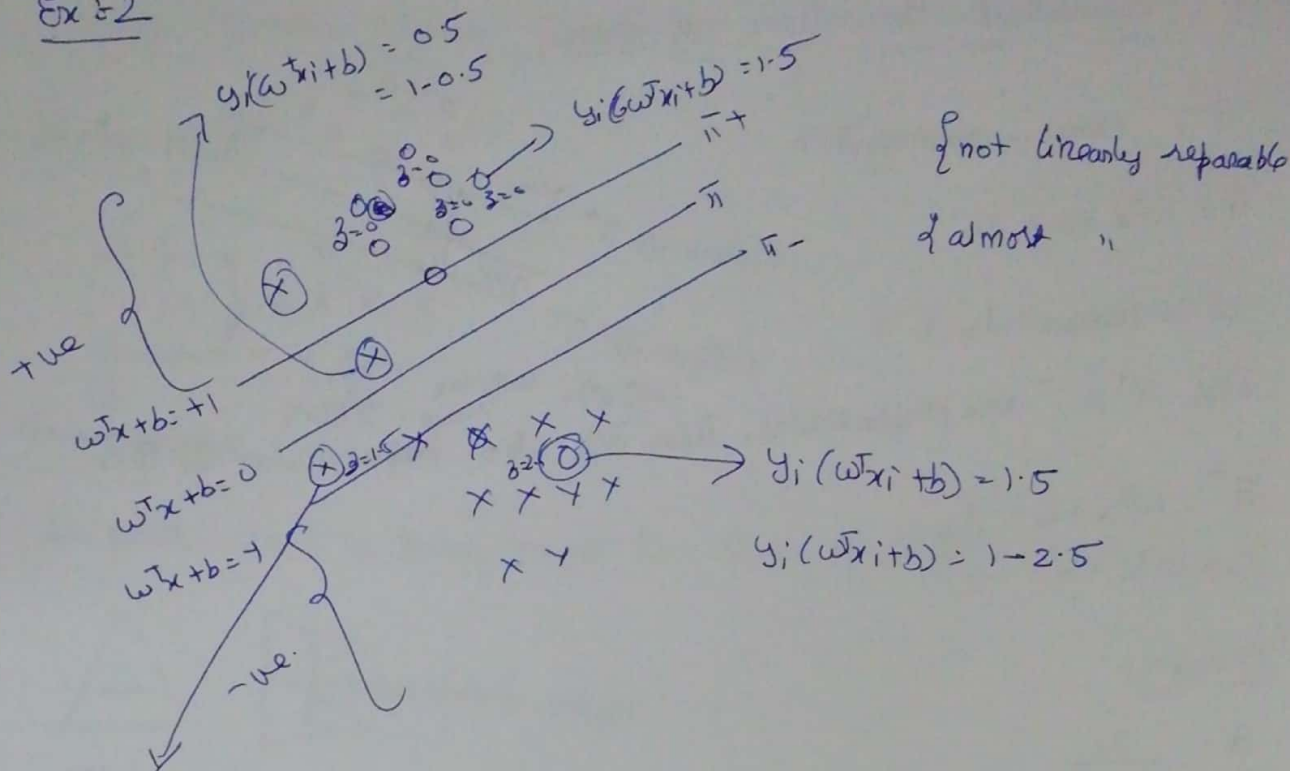 Ex=2
yi(ωᵀxi+b) = 0.5
= 1-0.5
yi(ωᵀxi+b) = 1.5
π+
π
π-
{not linearly separable
{almost "
3=0
3=0
3=0
+ve
ωᵀx+b=+1
ωᵀx+b=0
ωᵀx+b=-1
3=1.5
3=2.5
yi(ωᵀxi+b) = 1.5
yi(ωᵀxi+b) = 1-2.5
-ve.